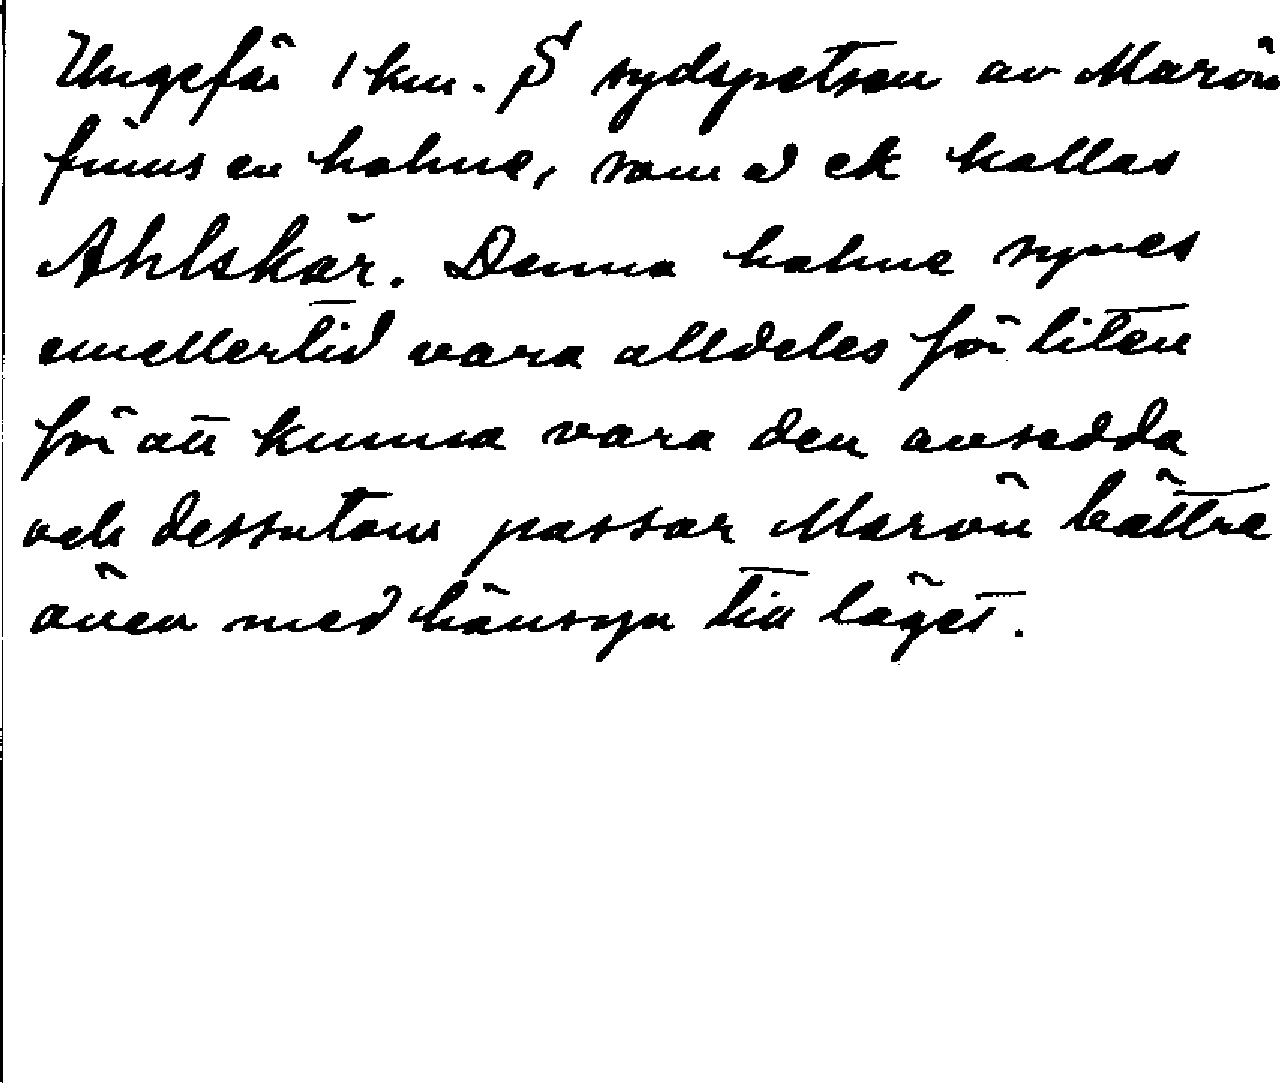 Ungefär 1 km. S sydspetsen av Marön
finns en holme, som å ek kallas
Ahlskär. Denna holme synes
emellertid vara alldeles för liten
för att kunna vara den avsedda
och dessutom passar Marön bättre
även med hänsyn till läget.